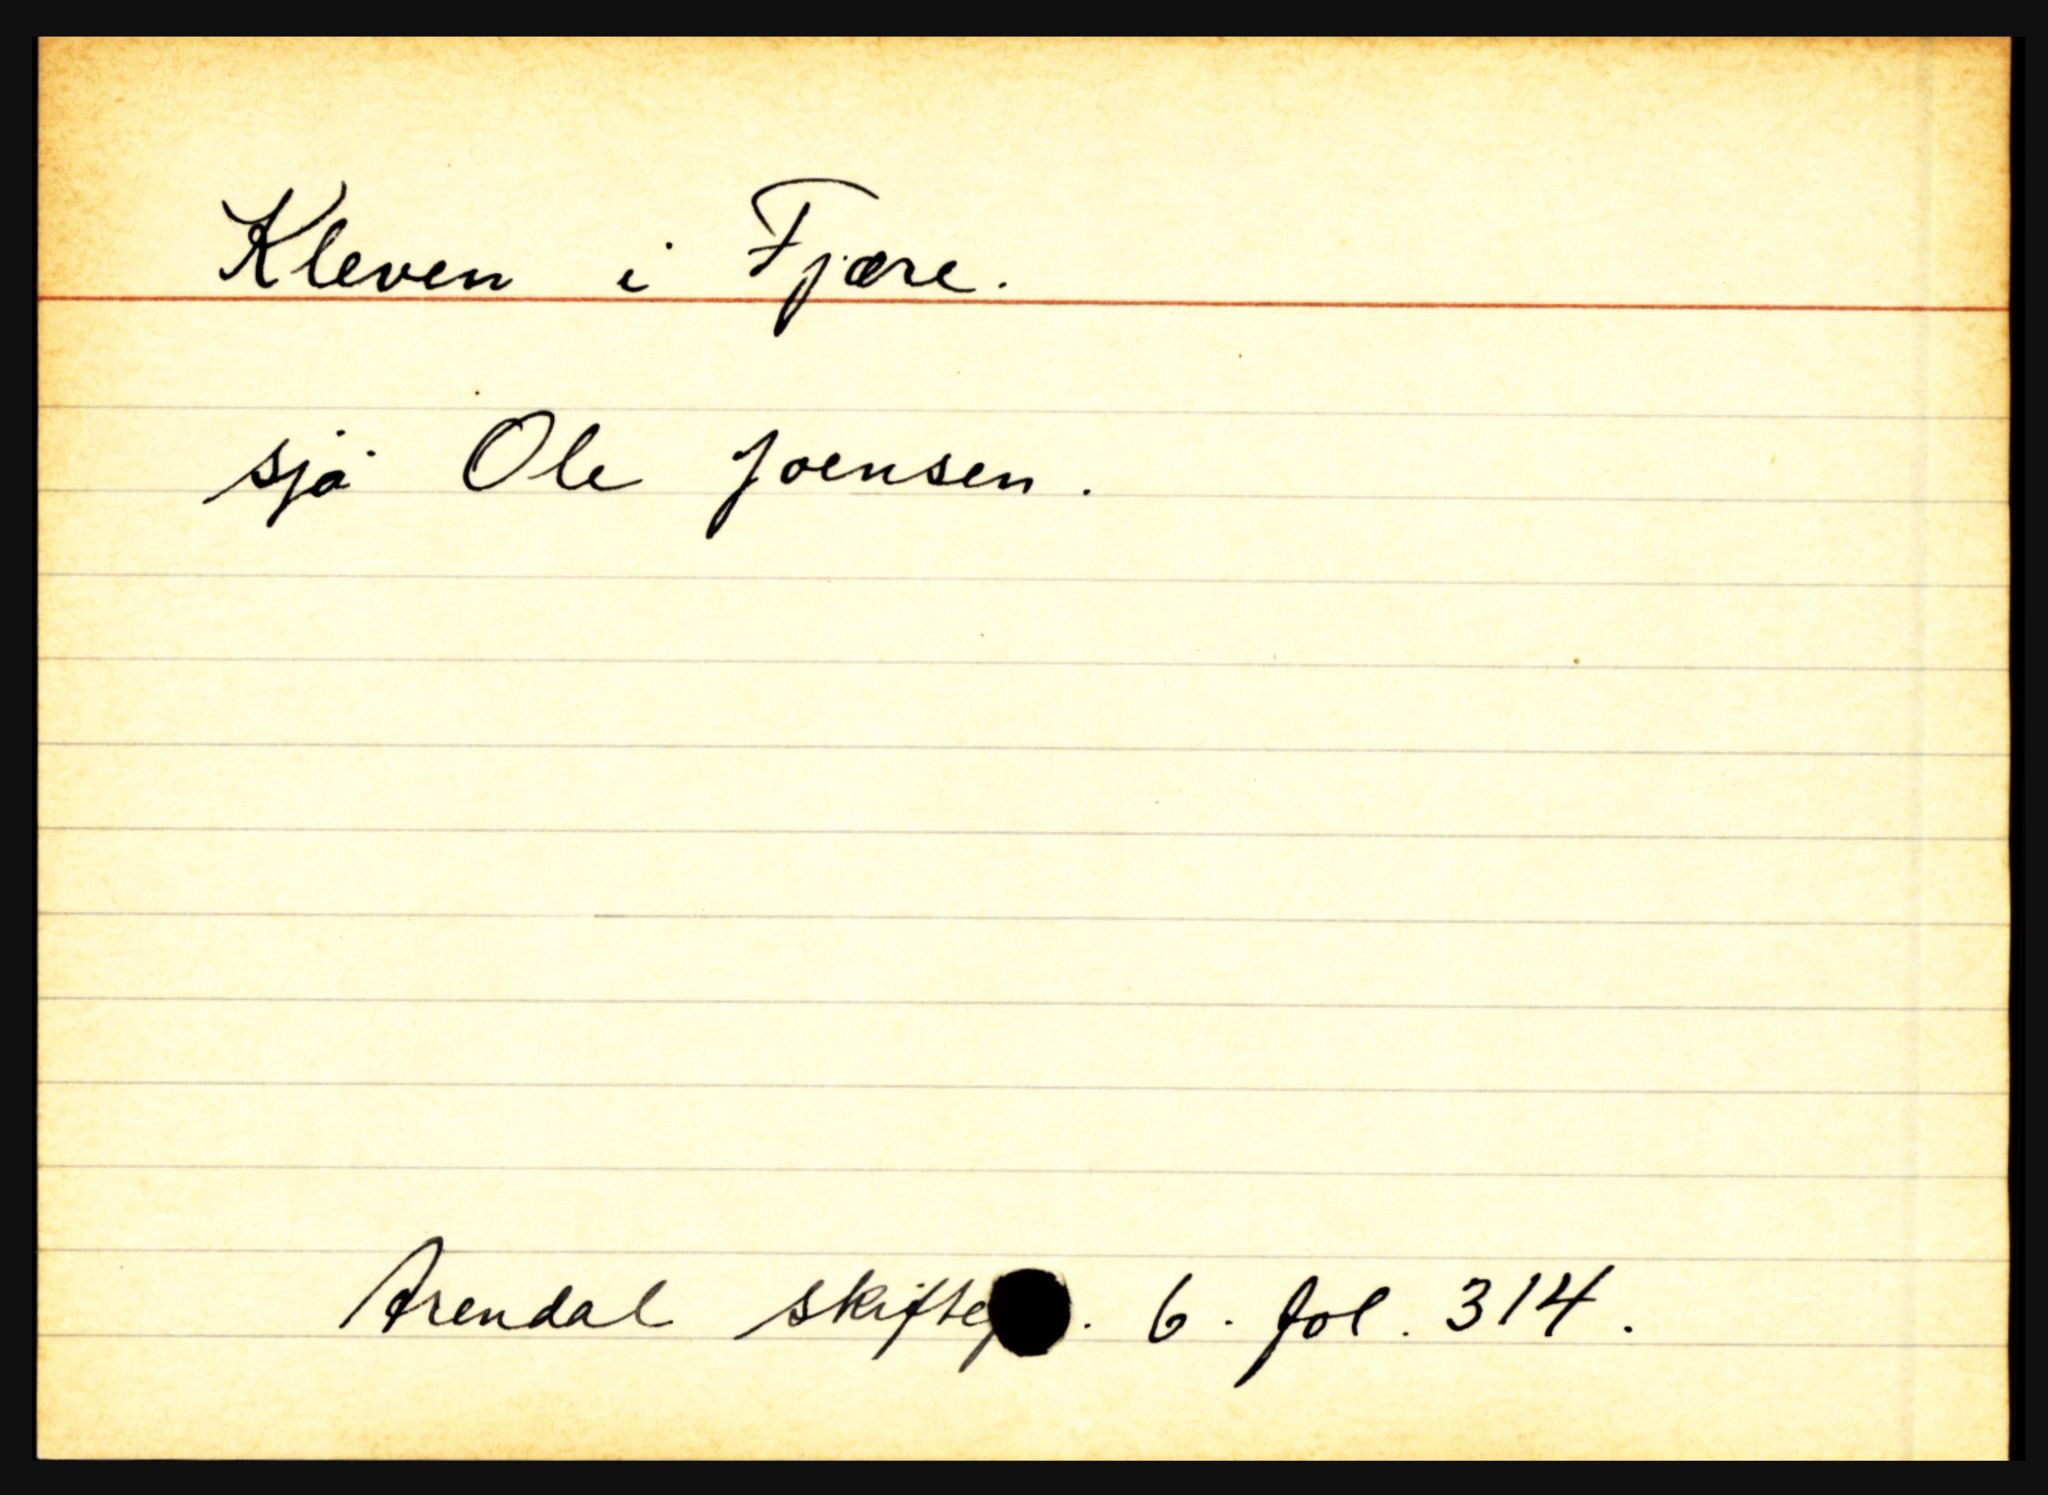 Kleven i Fjære.
sjå Ole Joensen.
Arendal . 6. fol. 314.